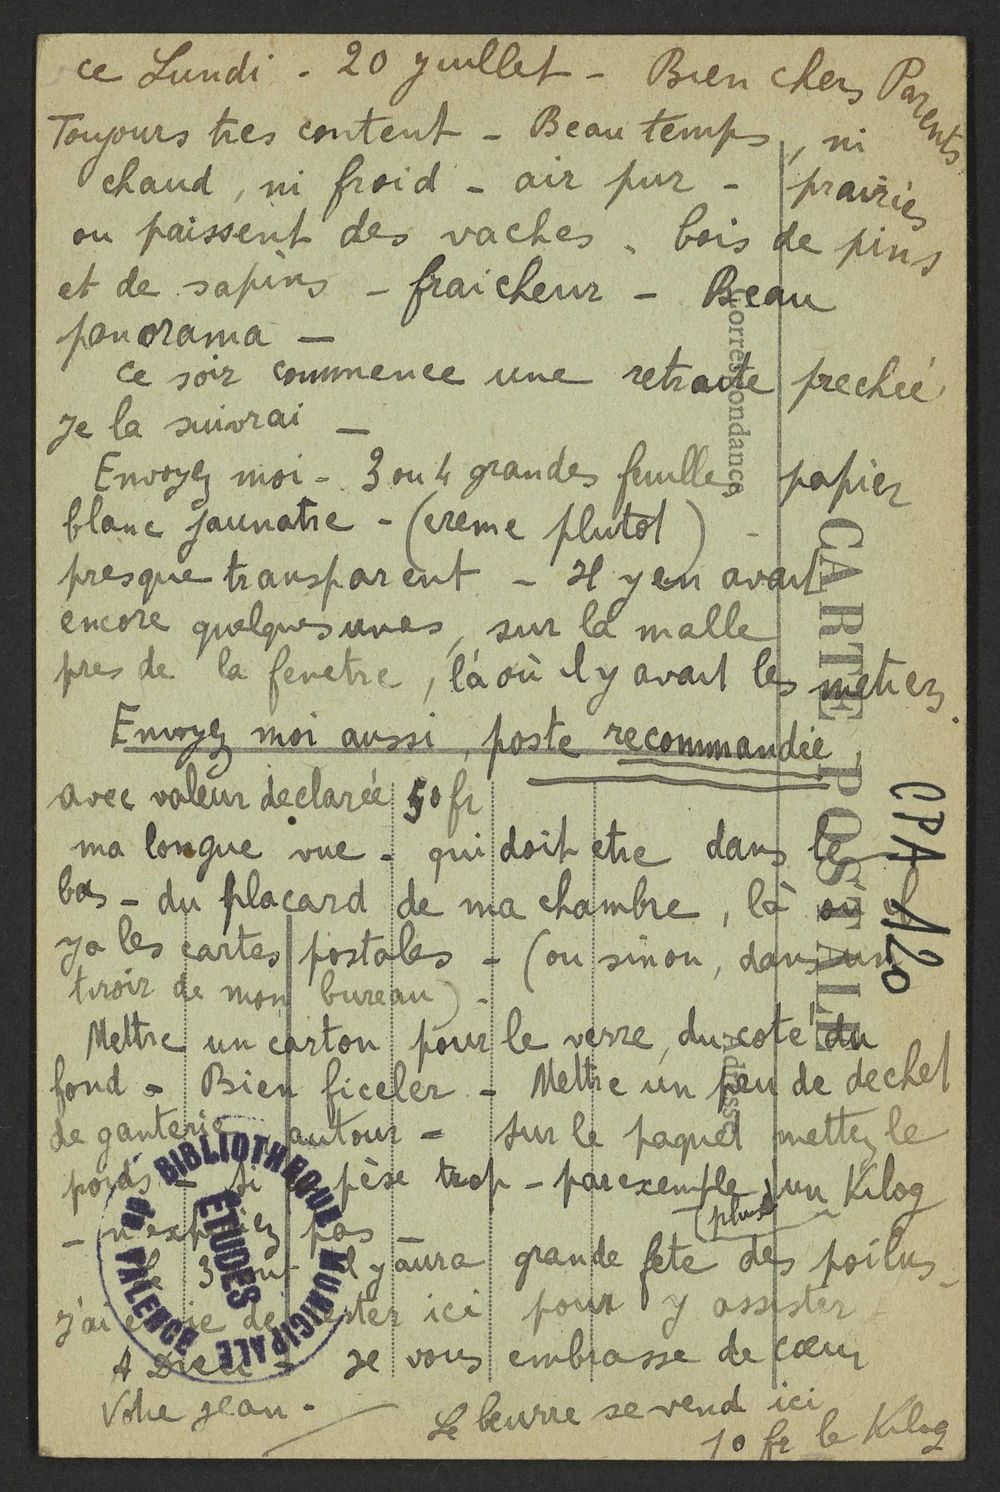 ce Lundi - 20 juillet - Bien chers Parents
Toujours tres content - Beau temps, ni
chaud, ni froid - air pur - prairies
ou paissent des vaches, bois de pins
et de sapins - fraicheur - Beau
panorama -
Ce soir commence une retraite prechée
Je la suivrai -
Envoyez moi - 3 ou 4 grandes feuilles papier
blanc jaunatre - (creme plutot) -
presque transparent - Il y en avait
encore quelques unes, sur la malle
pres de la fenetre, là où il y avait les metiers.
Envoyez moi aussi, poste recommandée
avec valeur declarée 50 fr
ma longue vue - qui doit etre dans le
bas - du placard de ma chambre, là où
y a les cartes postales - (ou sinon, dans un
tiroir de mon bureau) -
Mettre un carton pour le verre, du coté du
fond - Bien ficeler - Mettre un peu de dechet
de ganterie autour - sur le paquet mettez le
poids - si pèse trop - par exemple, un Kilog
(plus)
- n'expediez pas
le 3 il y aura grande fete des poilus -
J'ai envie de rester ici pour y assister
A Dieu - Je vous embrasse de cœur
Votre jean -
Le beurre se vend ici
10 fr le Kilog
Correspondance
CARTE POSTALE
Adresse
CPA 120
BIBLIOTHEQUE MUNICIPALE
de VALENCE
ETUDES